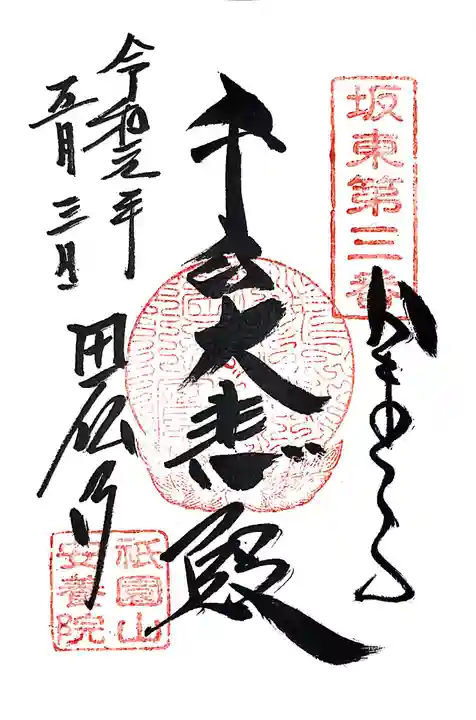 坂東第三番
千手大悲殿
令和元年
五月三日
田代寺
祇園山
安養院